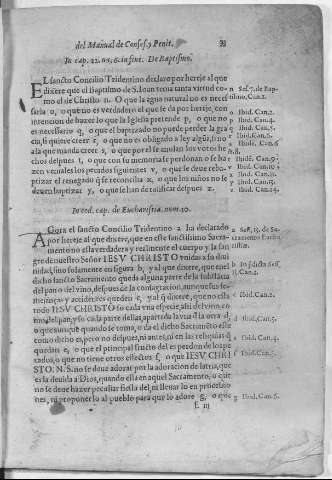 del Manual de Confes. y Penit. 
In cap. 22. nu. 6. in fine. De Baptismo.
EL sancto Concilio Tridentino declaro por hereje al que
dixere que el Baptismo de S. Ioan tenia tanta virtud co-
mo el de Christo n. O que la agua natural no es neces-
saria o, o que no es verdadero el que se haze por, con
intencion de hazer lo que la Iglesia pretende p, o que no es
necessario q, o que el baptizado no puede perder la gra-
cia, si quiere creer r, o que no es obligado a ley algũa, sino
a la que manda creer s, o que por el se anulan los votos he-
chos despues t, o que con su memoria se perdonan o se ha-
zen veniales los pecados siguientes v, o que se deue reba-
ptizar el renegado q̃ se reconcilia x, o que los niños no se
deuen baptizar y, o que se han de ratificar despues z.
n Ses. 7. de Bap-
tismo, Can. 1.
o Ibid. Can. 2.
p Ibid. Can. 4.
q Ibid. Can. 5.
r Ibid. Can. 6
t Ibid. Can. 9.
In eod. cap. de Eucharistia, num. 10.
AGora el sancto Concilio Tridentino a ha declarado
por hereje al que dixere, que en este sanctissimo Sacra-
mento no esta verdadera y realmente el cuerpo y la san-
gre de nuestro Señor IESV CHRISTO vnidas a su diui
nidad, sino solamente en figura b, y al que dixere, que en el
dicho sancto Sacramento queda alguna parte de la substãcia
del pan o del vino, despues de la consagracion, aunque sus fi-
meranças y accidentes queden c, y al q̃ dixere, que no esta
todo IESV CHRISTO so cada vna especie, assi del vino, co-
mo, del pan, y so cada parte dellas, apartada la vna d la otra d,
o que aunque quando se toma, o dá el dicho Sacramẽto este
como dicho es, pero no despues, ni antes, ni en las reliquias q̃
quedan e, o que el principal fructo del es perdon de los pe-
cados, o que no tiene otros effectos f, o que IESV CHRI-
STO. N. S. no se deue adorar por la adoracion de latria, que
es la deuida a Dios, quando esta en aquel Sacramento, o que
no se deue hazer peculiar fiesta del, ni llenar lo en processio
nes, ni proponerlo al pueblo para que lo adore g, o que
a Ses. 13. de Sa-
b In í dicta Ses.
c Ibid. Can. 2.
d Ibid. Can. 3.
e Ibid. Can. 4.
f Ibid. Can. 5.
g Ibid. Can. 6.